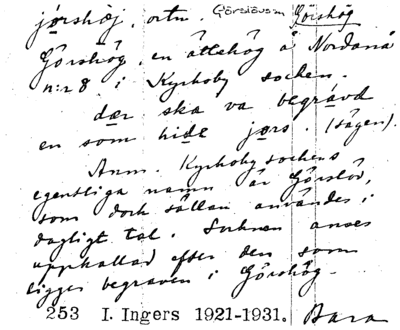 jørshøj, ortn. Görslövs sn Görshög
Görshög, en ättehög å Nordanå
n:r 8 i Kyrkoby socken.
dær ska va begrávd
en som hide jørs. (sägen).
Anm. Kyrkoby sockens
egentliga namn är Görslöv,
som dock sällan användes i
dagligt tal. Socknen anses
uppkallad efter den som
ligger begraven i Görshög.
253 I. Ingers 1921-1931. Bara